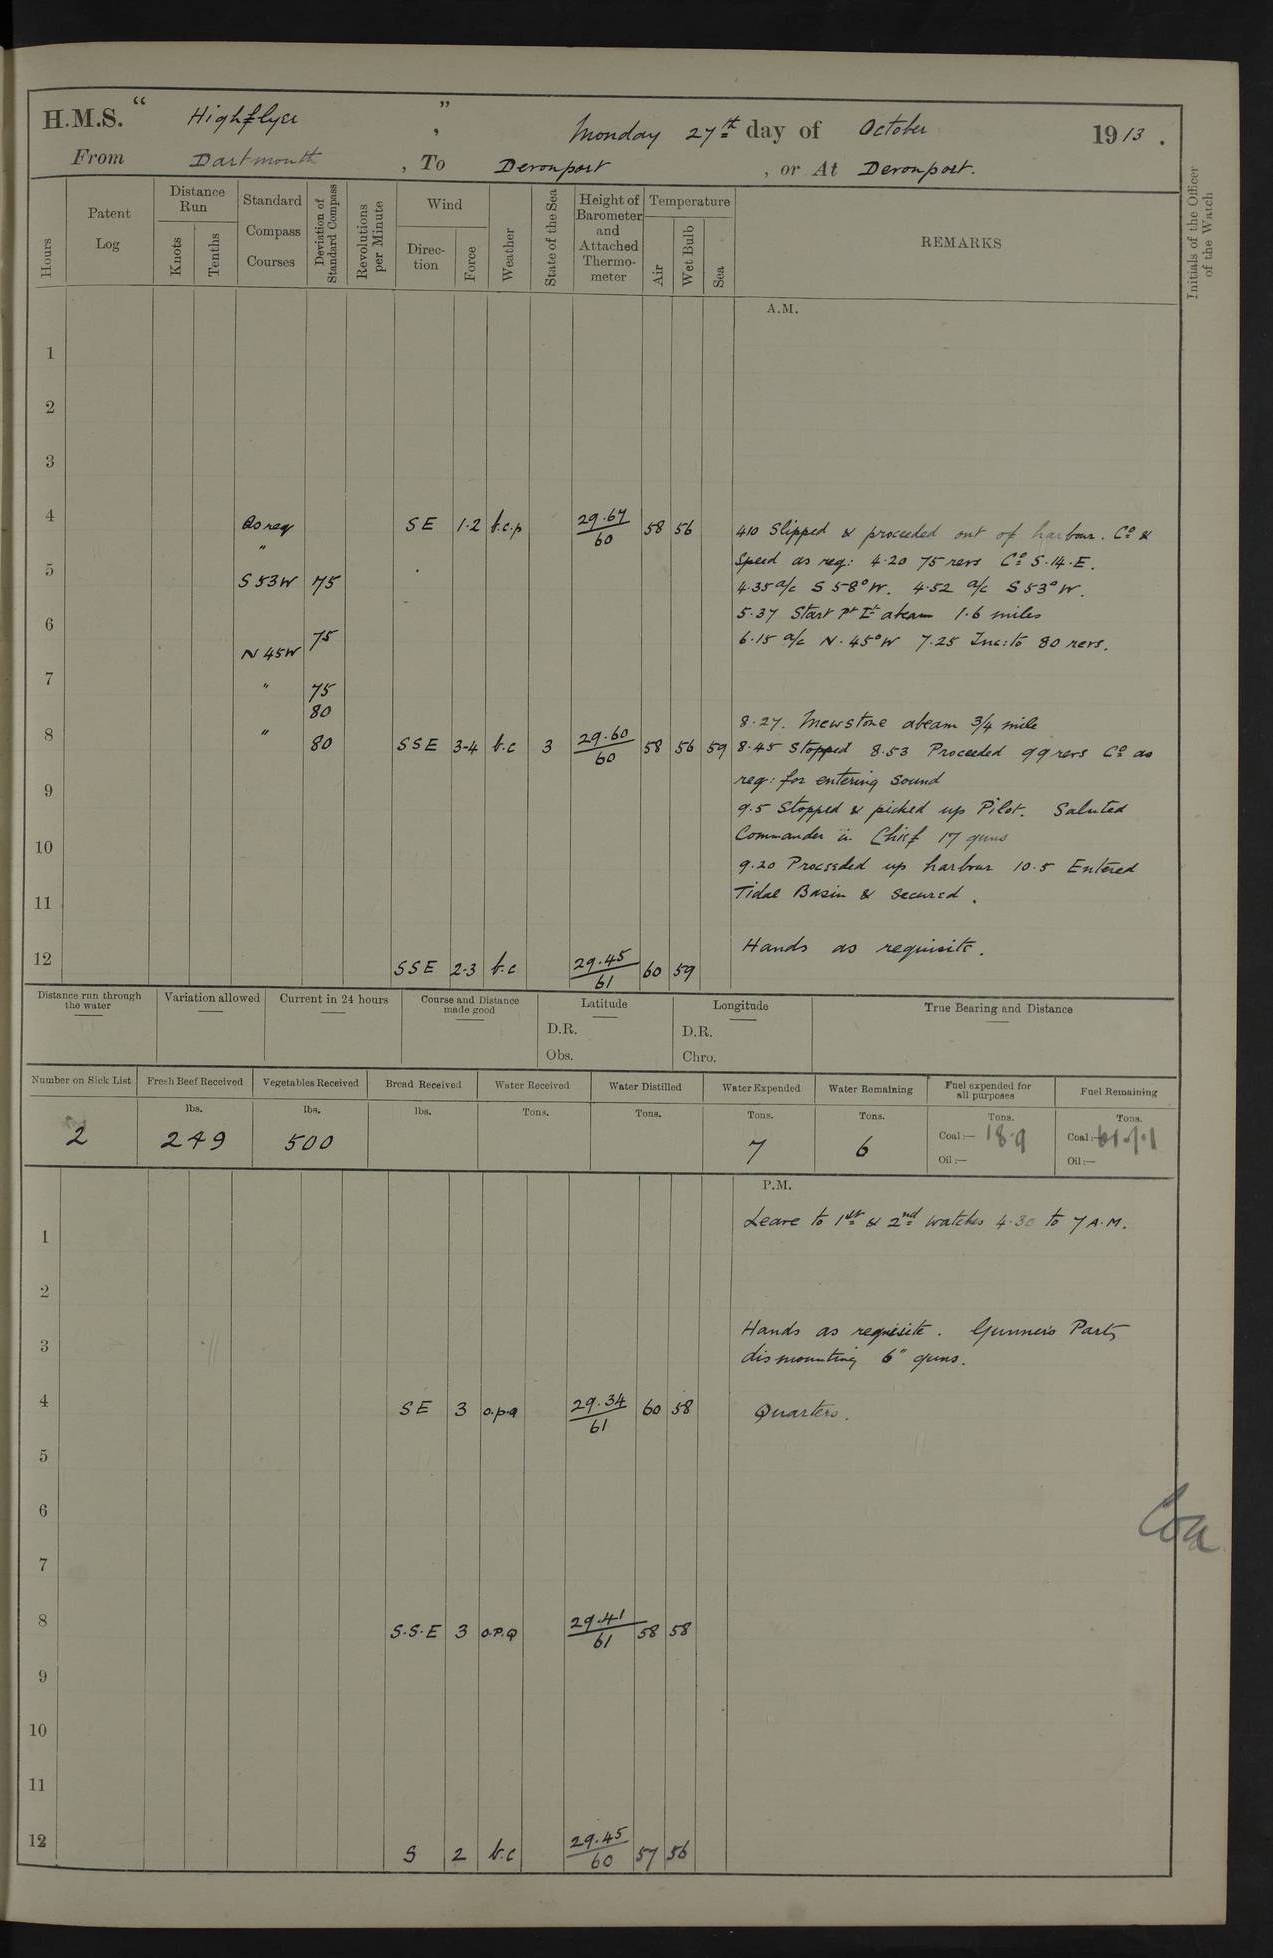 H.M.S. " Highflyer " , Monday 27th day of October 1913 .
From Dartmouth , To Devonport , or At Devonport.
Hours
Patent Log
Distance Run
Knots
Tenths
Standard Compass Courses
Deviation of Standard Compass
Revolutions per Minute
Wind
Direction
Force
Weather
State of the Sea
Height of Barometer and Attached Thermometer
Temperature
Air
Wet Bulb
Sea
REMARKS
Initials of the Officer of the Watch
A.M.
1
2
3
4 As req SE 1·2 b.c.p 29·67/60 58 56 410 Slipped & proceeded out of harbour. Co &
" Speed as req: 4·20 75 revs Co S.14.E.
5 S 53W 75 4·35 a/c S 58° W. 4·52 a/c S 53° W.
5·37 Start Pt Lt abeam 1·6 miles
6 N 45W 75 6·15 a/c N. 45° W 7.25 Inc: to 80 revs.
7 " 75
80 8·27. Mewstone abeam 3/4 mile
8 " 80 SSE 3-4 b.c 3 29·60/60 58 56 59 8·45 Stopped 8.53 Proceeded 99 revs Co as
req: for entering Sound
9 9.5 Stopped & picked up Pilot. Saluted
Commander in Chief 17 guns
10 9.20 Proceeded up harbour 10.5 Entered
11 Tidal Basin & secured.
Hands as requisite.
12 SSE 2-3 b.c 29·45/61 60 59
Distance run through the water
Variation allowed
Current in 24 hours
Course and Distance made good
Latitude
D.R.
Obs.
Longitude
D.R.
Chro.
True Bearing and Distance
Number on Sick List
Fresh Beef Received
Vegetables Received
Bread Received
Water Received
Water Distilled
Water Expended
Water Remaining
Fuel expended for all purposes
Fuel Remaining
lbs. lbs. lbs. Tons. Tons. Tons. Tons. Tons. Tons.
2 249 500 7 6 Coal:— 18·9 Coal:—
Oil:— Oil:—
P.M.
1 Leave to 1st & 2nd watches 4·30 to 7 A.M.
2
Hands as requisite. Gunner's Party
3 dismounting 6" guns.
4 SE 3 o.p.q 29.34/61 60 58 Quarters.
5
6
7
8 S.S.E 3 O.P.Q 29.41/61 58 58
9
10
11
12 S 2 b.c 29.45/60 57 56